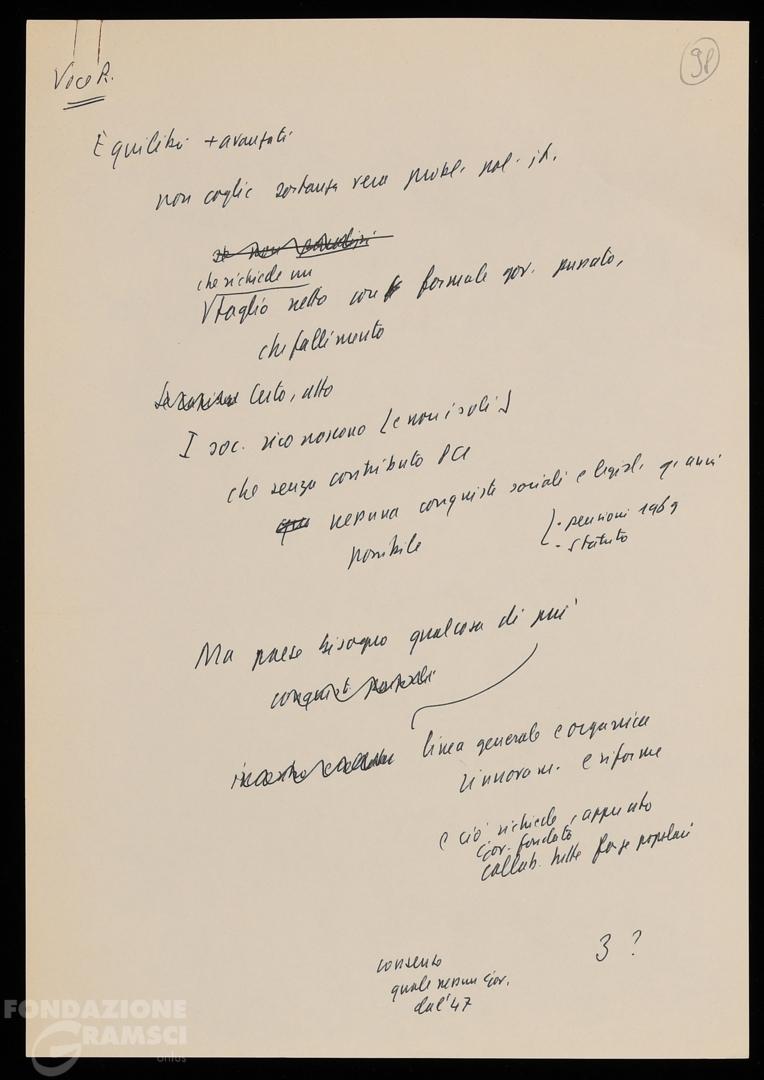 Voce R.
98
Equilibri + avanzati
non coglie sostanza vera probl. pol. it.
se non
che richiede un
taglio netto con formale gov. passato,
che fallimento
Certo, atto
I soc. riconoscono (e non i soli)
che senza contributo PCI
nessuna conquista sociali e legisl. q. anni
possibile
- pensioni 1969
- statuto
Ma paese bisogno qualcosa di più
conquist parziali
linea generale e organica
rinnovam. e riforme
e ciò richiede, appunto
Gov. fondato
collab. tutte forze popolari
3 ?
consenso
quale nessun Gov.
dal '47
FONDAZIONE
GRAMSCI
onlus